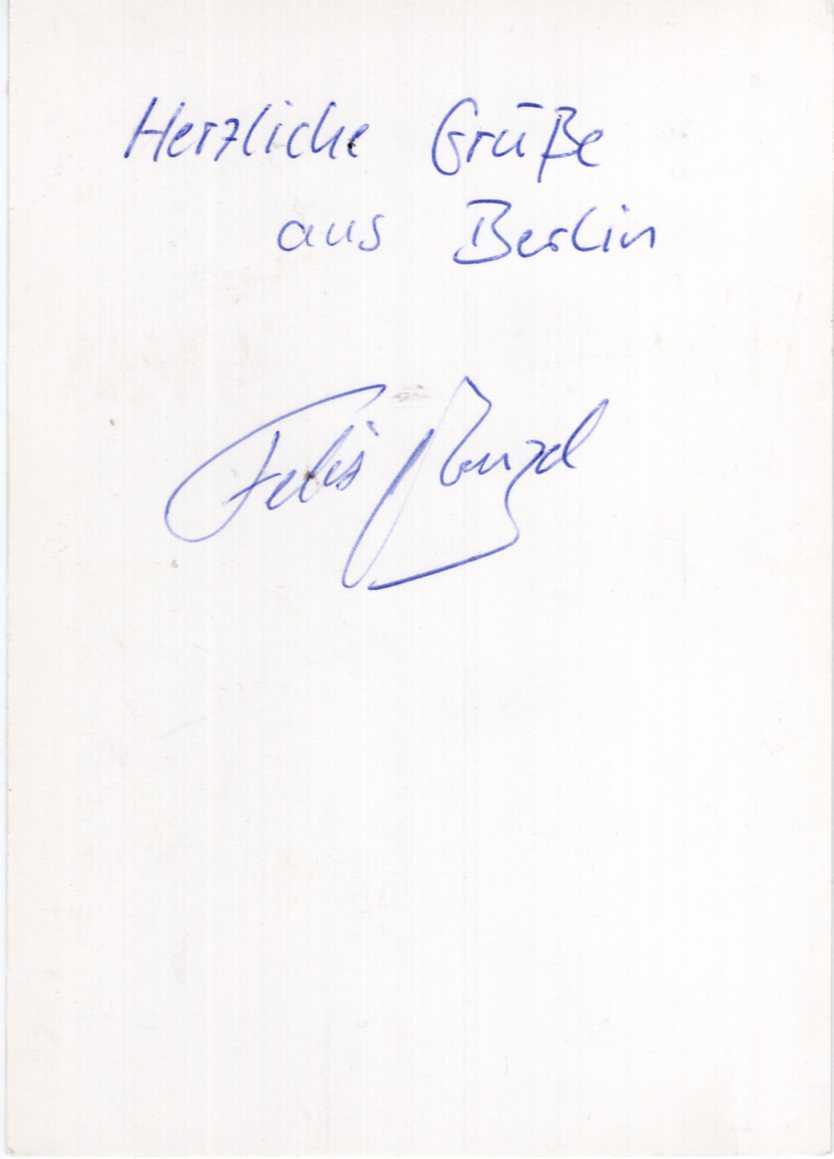 Herzliche Grüße
aus Berlin
Felix